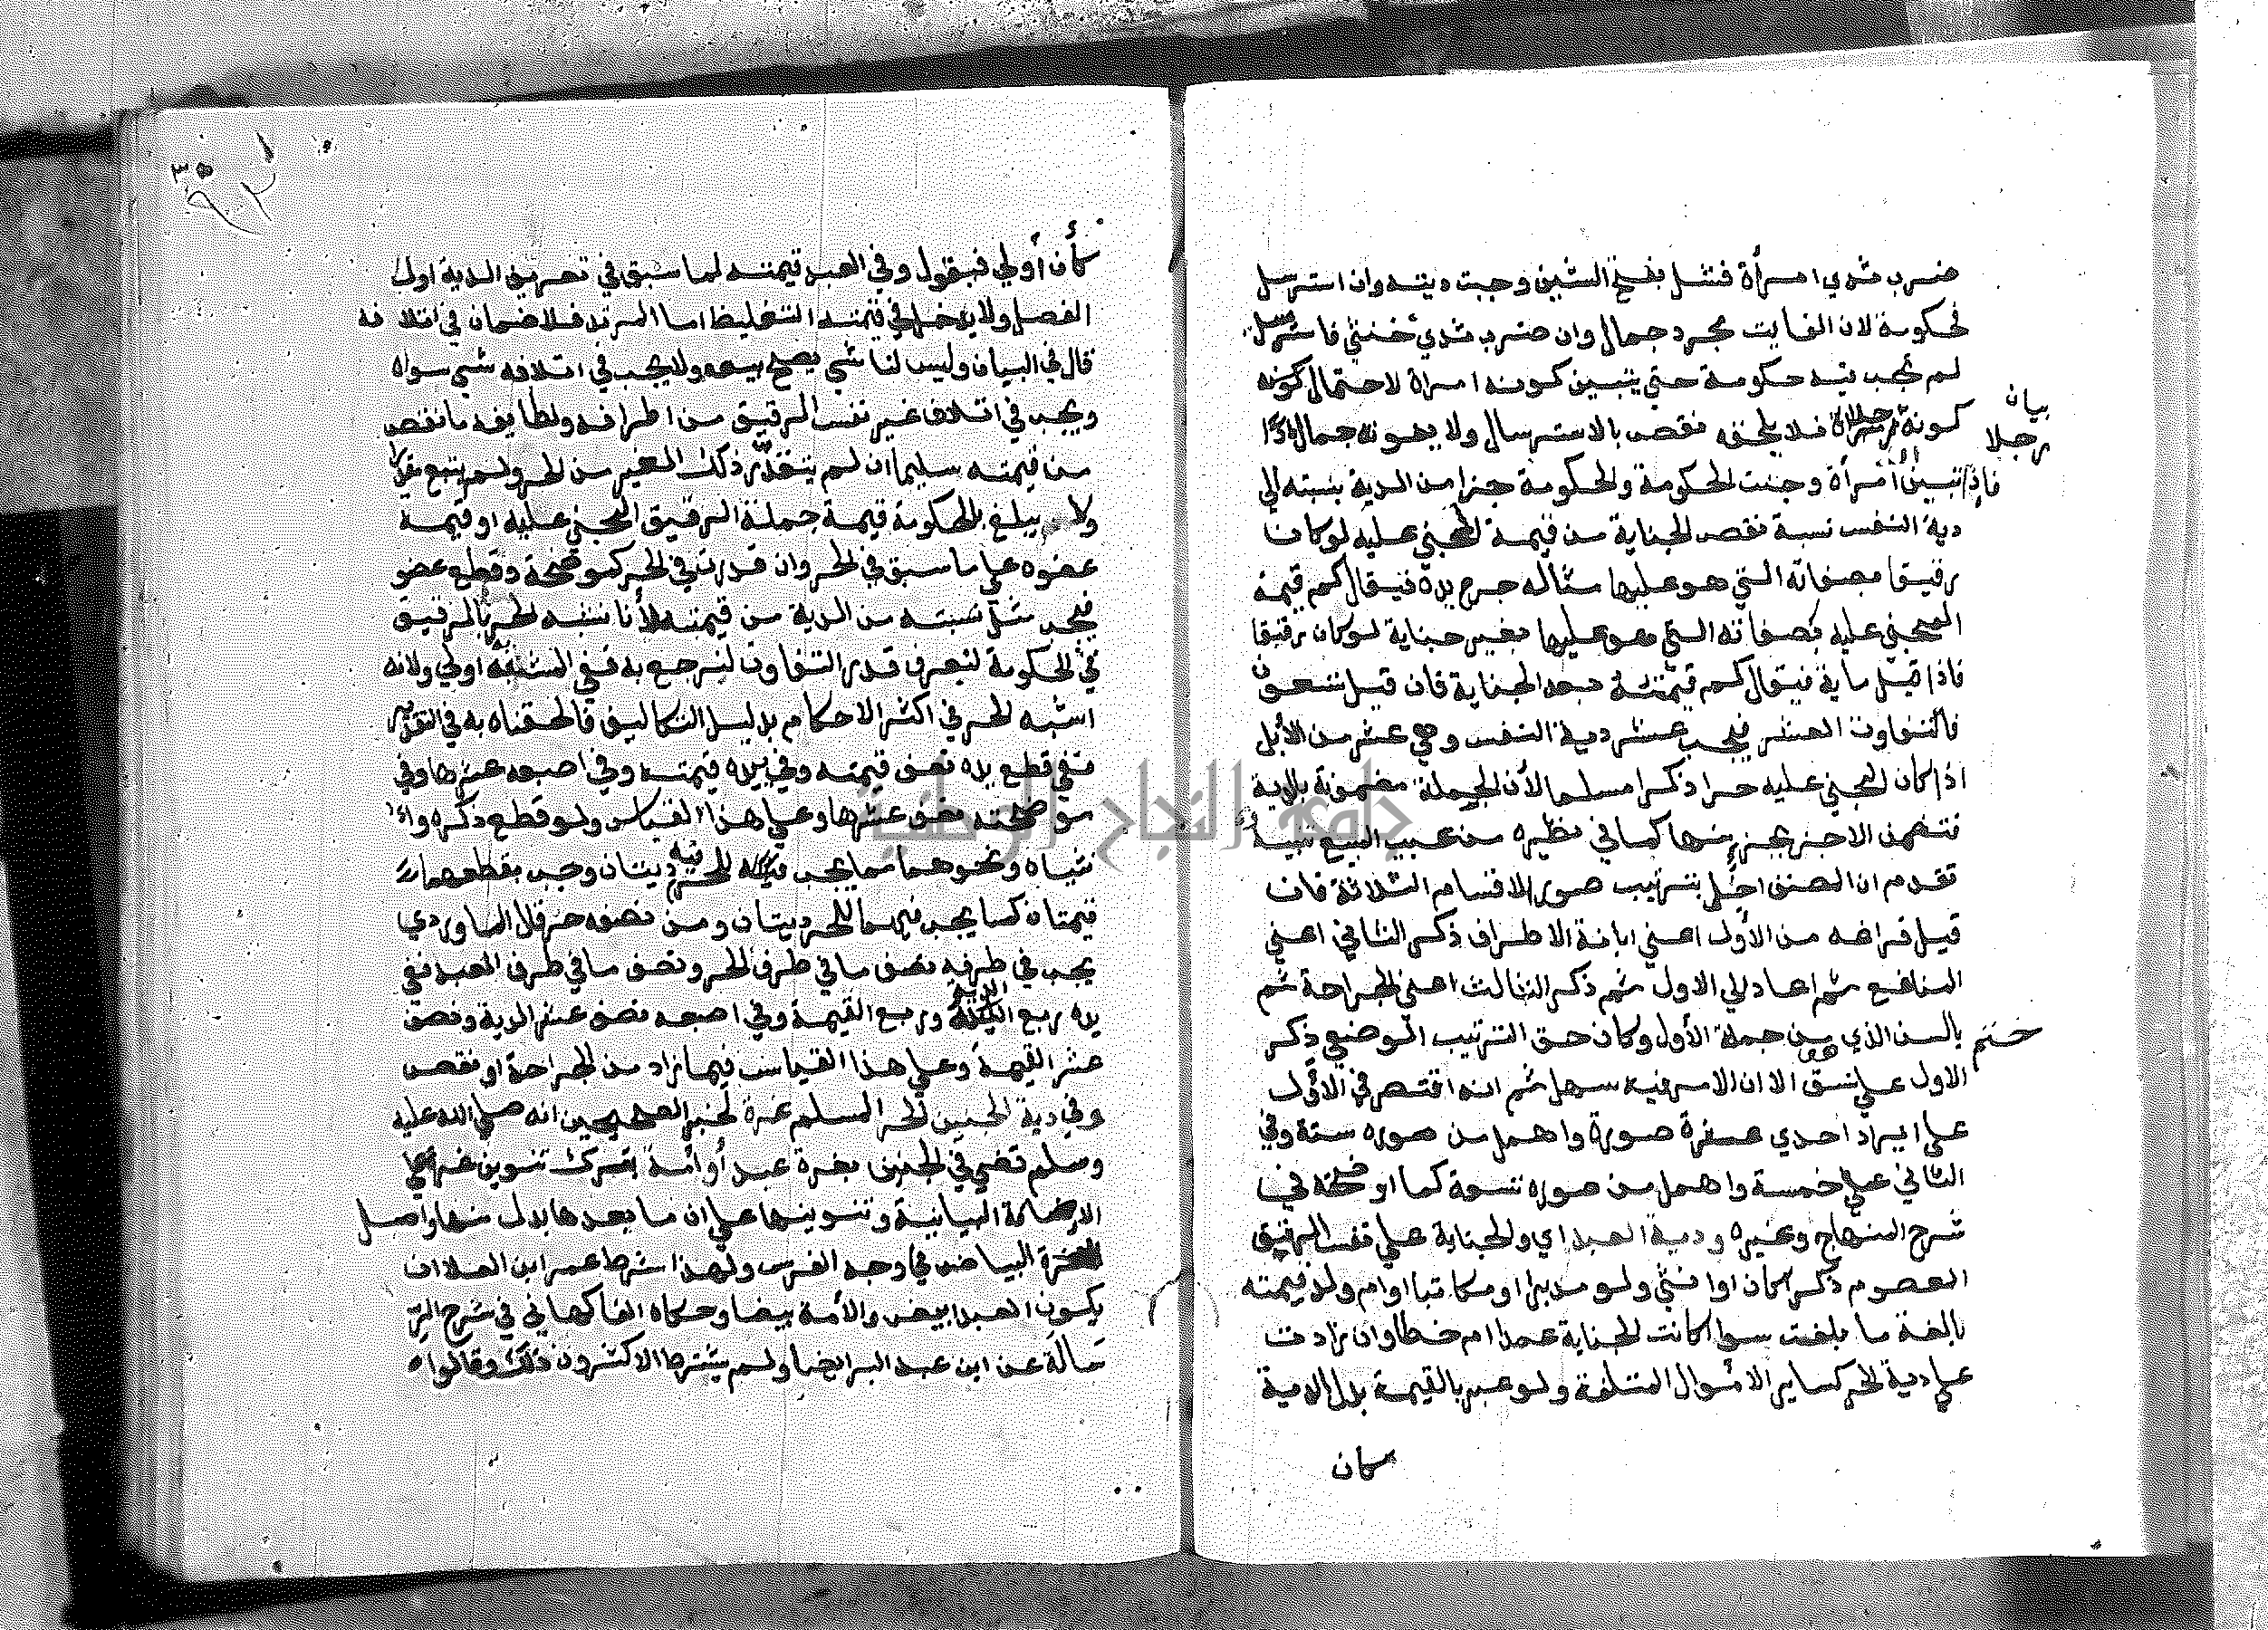 ضرب ثدي امرأة فشل بفتح الشين وجبت ديته وان استرسل
فحكومة لان الفايت مجرد جمال وان ضرب ثدي خنثي فاسترسل
لم تجب فيه حكومة حتي يتبين كونه امراة لاحتمال كونه
كونه رجلا فلا يلحقه نقص بالاسترسال ولا يفوته جمال
بيان
رجلا
فاذا تبين امرأة وجبت الحكومة والحكومة جزا من الدية نسبته الي
دية النفس نسبة نقص الجناية من قيمة المجني عليه لوكان
رقيقا بصفاته التي هو عليها مثاله جرح يده فيقال كم قيمة
المجني عليه بصفاته التي هو عليها بغير جناية لوكان رقيقا
فاذا قيل ماية فيقال كم قيمته بعد الجناية فان قيل تسعون
فالتفاوت العشر فيجب عشر دية النفس وهي عشر من الأبل
اذا كان المجني عليه حرا ذكرا مسلما لأن الجملة مضمونة بالدية
فتضمن الاجزا بجزء منها كما في نظيره من عيب المبيع تنبيه
تقدم ان المصنف اخل بترتيب صور الاقسام الثلاثة فان
قبل فراغه من الأول اعني ابانة الاطراف ذكر الثاني اعني
المنافع ثم اعاد الي الاول ثم ذكر الثالث اعني الجراحة ثم
ختم
بالسن الذي من جملة الأول وكان حق الترتيب الوضعي ذكر
الاول علي نسق الا ان الامر فيه سهل ثم انه اقتصر في الاول
علي ايراد احدي عشرة صورة واهمل من صوره ستة وفي
الثاني علي خمسة واهمل من صوره تسعة كما اوضحته في
شرح المنهاج وغيره ودية العبد اي والجناية علي نفس الرقيق
المعصوم ذكرا كان او انثي ولو مدبرا او مكاتبا او ام ولد قيمته
بالغة ما بلغت سوا كانت الجناية عمدا ام خطا وان زادت
علي دية الحر كساير الاموال المتلفة ولو عبر بالقيمة بدل الدية
كان
٣٥
كأن أولي فيقول وفي العبد قيمته لما سبق في تعريف الدية اول
الفصل ولا يدخل في قيمته التغليظ اما المرتد فلا ضمان في اتلافه
قال في البيان وليس لنا شي يصح بيعه ولا يجب في اتلافه شي سواه
ويجب في اتلاف غير نفس الرقيق من اطرافه ولطايفه ما نقص
من قيمته سليما ان لم يتقدر ذلك الغير من الحر ولم يتبع مقدرا
ولا يبلغ بالحكومة قيمة جملة الرقيق المجني عليه او قيمة
عضوه علي ما سبق في الحر وان قدرت في الحر كموضحة وقطع عضو
فيجب مثل نسبته من الدية من قيمته لأنا نشبه الحر بالرقيق
في الحكومة لنعرف قدر التفاوت لنرجع به ففي المشبه اولي ولانه
اشبه الحر في اكثر الاحكام بدليل التكاليف فالحقناه به في التقدير
ففي قطع يده نصف قيمته وفي يديه قيمته وفي اصبعه عشرها وفي
موضحته نصف عشرها وعلي هذا القياس ولو قطع ذكره وا
نثياه ونحوهما مما يجب فيه للحر ديتان وجب بقطعهما له
قيمتان كما يجب فيهما للحر ديتان ومن نصفه حر قال الماوردي
يجب في طرفه نصف ما في طرف الحر ونصف ما في طرف العبد ففي
يده ربع الدية وربع القيمة وفي اصبعه نصف عشر الدية ونصف
عشر القيمة وعلي هذا القياس فيما زاد من الجراحة او نقص
وفي دية الجنين الحر المسلم غرة لخبر الصحيحين انه صلي الله عليه
وسلم قضي في الجنين بغرة عبد أو أمة بترك تنوين غرة علي
الاضافة البيانية وتنوينها علي ان ما بعدها بدل منها واصل
الغرة البياض في وجه الفرس ولهذا شرط عمر ابن العلا ان
يكون العبد ابيض والأمة بيضا وحكاه الفاكهاني في شرح الر
سالة عن ابن عبد البر ايضا ولم يشترط الاكثرون ذلك وقالوا
جامعة النجاح الوطنية